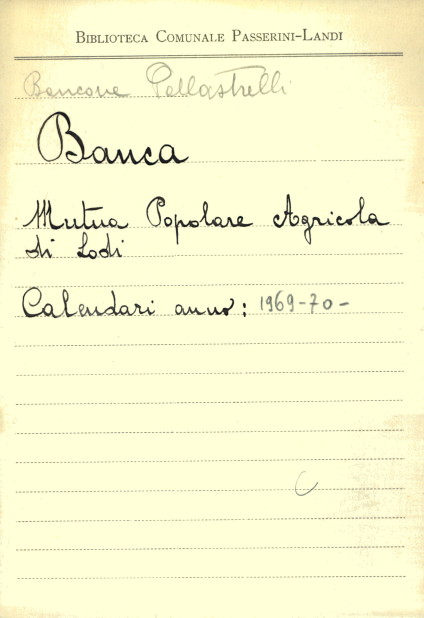 BIBLIOTECA COMUNALE PASSERINI-LANDI
Bancone Pallastrelli
Banca
Mutua Popolare Agricola
di Lodi
Calendari anno: 1969-70-